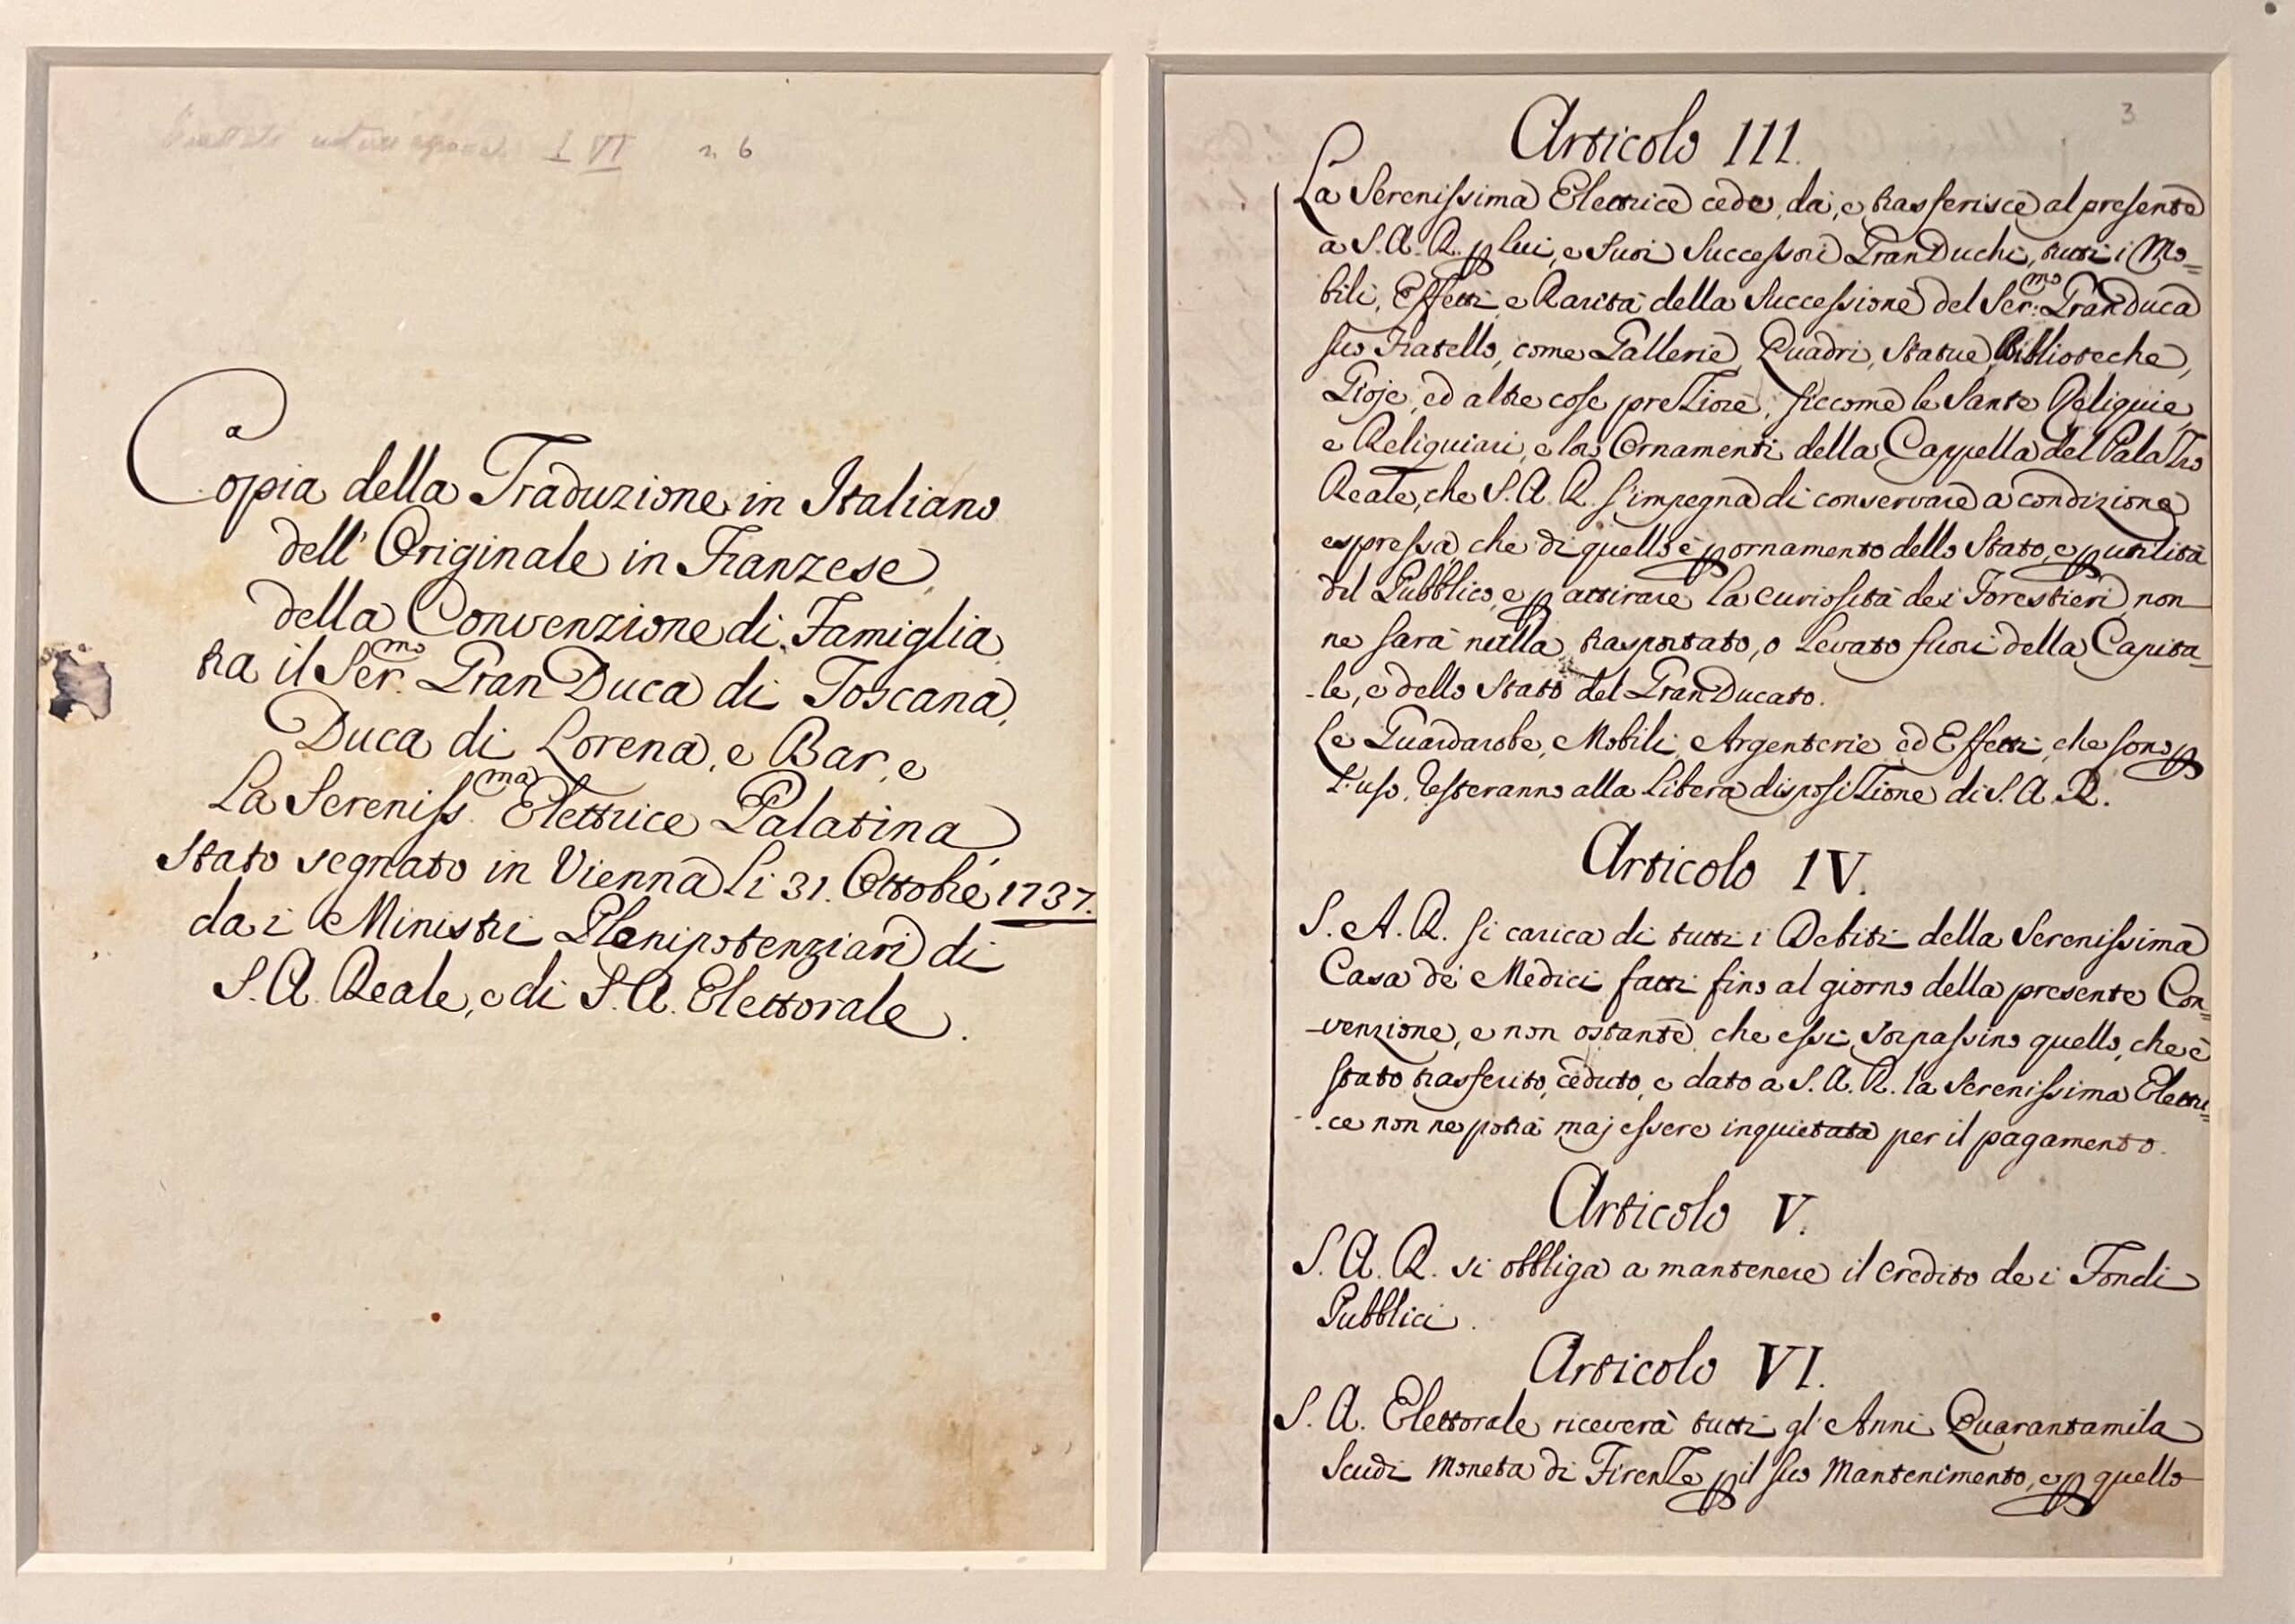 I VI n. 6
Copia della Traduzione in Italiano
dell' Originale in Franzese
della Convenzione di Famiglia
tra il Ser.mo Gran Duca di Toscana,
Duca di Lorena, e Bar, e
La Sereniss.ma Elettrice Palatina
Stato segnato in Vienna li 31. Ottobre 1737.
dai Ministri Plenipotenziari di
S. A. Reale, e di S. A. Elettorale.
3
Articolo III.
La Serenissima Elettrice cede, dà, e trasferisce al presente
a S. A. R. p lui, e Suoi Successori GranDuchi, tutti i Mo=
bili, Effetti e Rarità della Successione del Ser:mo GranDuca
suo Fratello, come Gallerie, Quadri, Statue, Biblioteche,
Gioje, ed altre cose preziose, siccome le Sante Reliquie,
e Reliquiari, e loro Ornamenti della Cappella del Palazzo
Reale, che S. A. R. s'impegna di conservare a condizione
espressa, che di quello è p ornamento dello Stato, e p utilità
del Pubblico, e p attirare la curiosità dei Forestieri, non
ne sarà nulla trasportato, o levato fuori della Capita-
-le, e dello Stato del GranDucato.
Le Guardarobe, Mobili, Argenterie ed Effetti, che sono p
l'uso, resteranno alla libera disposizione di S. A. R.
Articolo IV.
S. A. R. si carica di tutti i Debiti della Serenissima
Casa de Medici fatti fino al giorno della presente Con=
-venzione, e non ostante che essi sorpassino quello, che è
stato trasferito, ceduto, e dato a S. A. R. la Serenissima Elettri=
-ce non ne potrà maj essere inquietata per il pagamento.
Articolo V.
S. A. R. si obbliga a mantenere il credito dei Fondi
Pubblici.
Articolo VI.
S. A. Elettorale riceverà tutti gl' Anni Quarantamila
Scudi Moneta di Firenze p il suo Mantenimento, e p quello